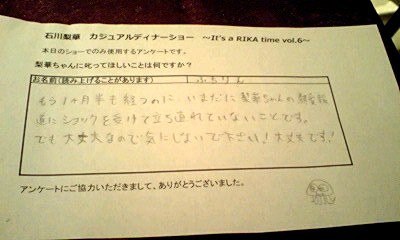 石川梨華 カジュアルディナーショー ～It's a RIKA time vol.6～
本日のショーでのみ使用するアンケートです。
梨華ちゃんに叱ってほしいことは何ですか？
お名前(読み上げることがあります) ふちりん
もう1ヶ月半も経つのに、いまだに梨華ちゃんの熱愛報
道にショックを受けて立ち直れていないことです。
でも大丈夫なので気にしないで下さい！大丈夫です！
アンケートにご協力いただきまして、ありがとうございました。